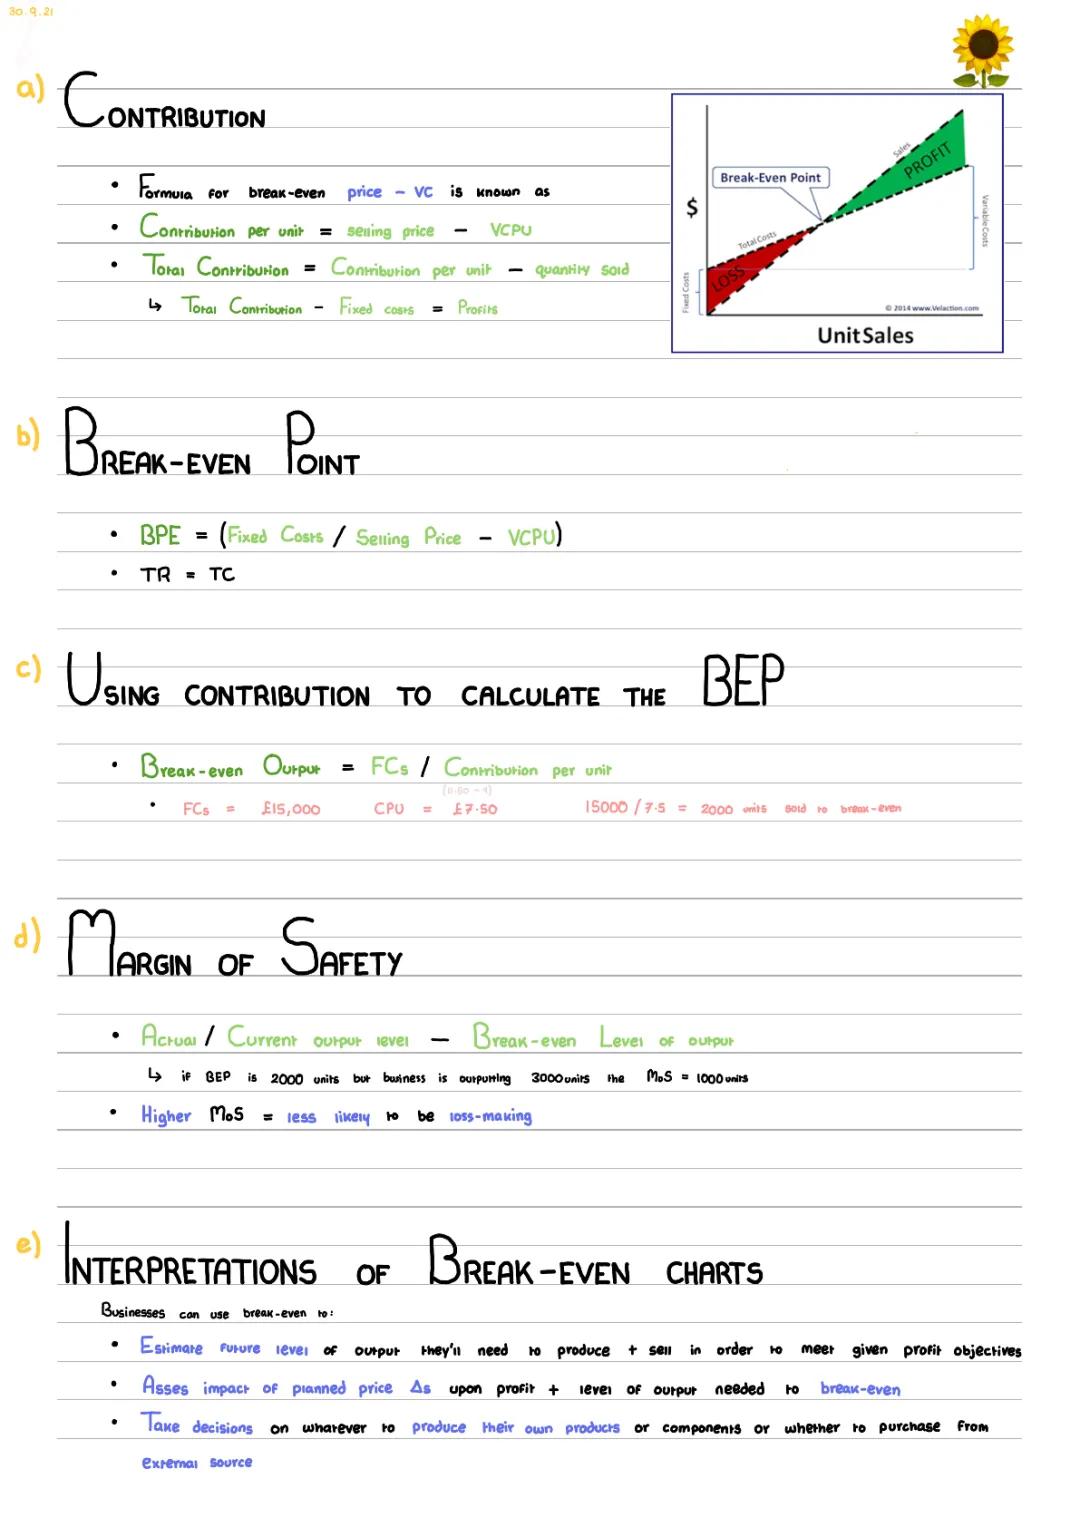 30.9.21
a) CONTRIBUTION
• Formula for break-even price - VC is known as
• Contribution per unit = selling price - VCPU
• Total Contribution = Contribution per unit - quantity sold
↳ Total Contribution - Fixed costs = Profits
Break-Even Point
Sales
PROFIT
$
Total Costs
LOSS
Fixed Costs
Variable Costs
© 2014 www.Velaction.com
Unit Sales
b) BREAK-EVEN POINT
• BPE = (Fixed Costs / Selling Price - VCPU)
• TR = TC
c) USING CONTRIBUTION TO CALCULATE THE BEP
• Break-even Output = FCs / Contribution per unit
(11.50 - 4)
• FCs = £15,000 CPU = £7.50 15000 / 7.5 = 2000 units sold to break-even
d) MARGIN OF SAFETY
• Actual / Current output level - Break-even Level of output
↳ if BEP is 2000 units but business is outputting 3000units the MoS = 1000units
• Higher MoS = less likely to be loss-making
e) INTERPRETATIONS OF BREAK-EVEN CHARTS
Businesses can use break-even to:
• Estimate future level of output they'll need to produce + sell in order to meet given profit objectives
• Asses impact of planned price Δs upon profit + level of output needed to break-even
• Take decisions on whatever to produce their own products or components or whether to purchase from
external source